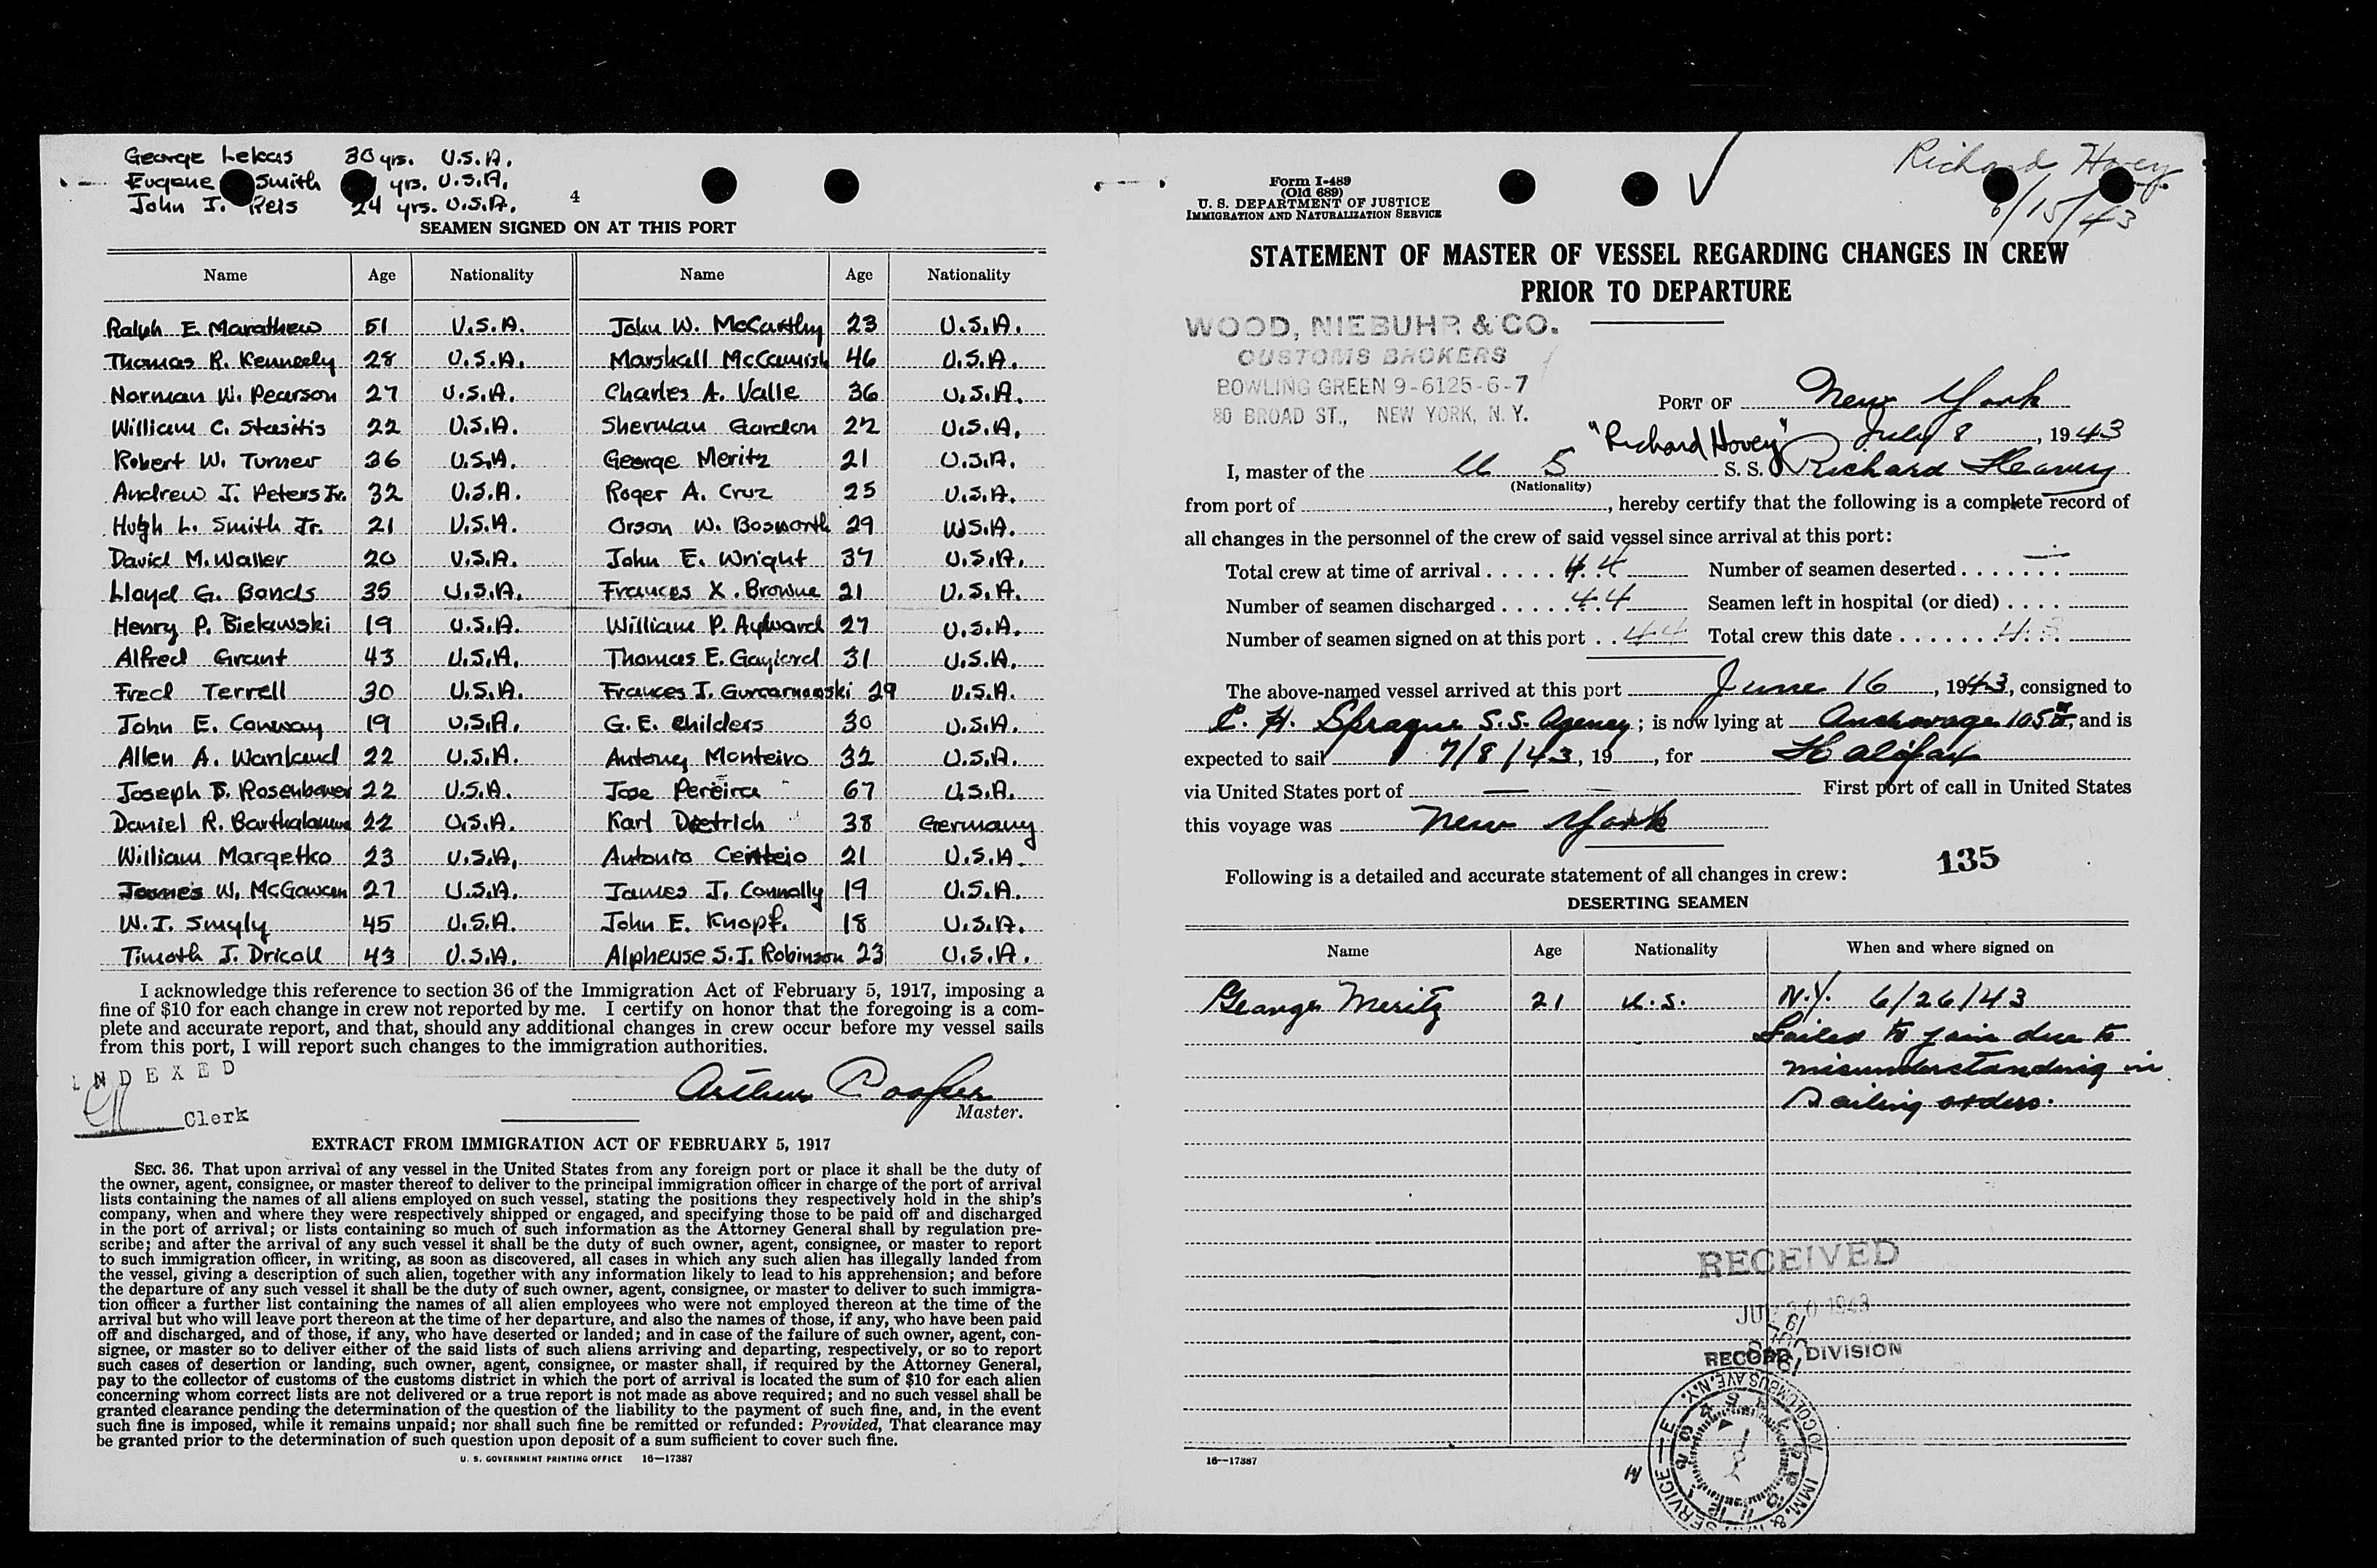 George Lekas 30 yrs. U.S.A.
Eugene Smith yrs. U.S.A.
John J. Reis 24 yrs. U.S.A.
4
SEAMEN SIGNED ON AT THIS PORT
Name Age Nationality Name Age Nationality
Ralph E. Marathew 51 U.S.A. John W. McCarthy 23 U.S.A.
Thomas R. Kenneely 28 U.S.A. Marshall McCamish 46 U.S.A.
Norman W. Pearson 27 U.S.A. Charles A. Valle 36 U.S.A.
William C. Stasitis 22 U.S.A. Sherman Gordon 22 U.S.A.
Robert W. Turner 36 U.S.A. George Meritz 21 U.S.A.
Andrew J. Peters Jr. 32 U.S.A. Roger A. Cruz 25 U.S.A.
Hugh L. Smith Jr. 21 U.S.A. Orson W. Bosworth 29 U.S.A.
David M. Waller 20 U.S.A. John E. Wright 37 U.S.A.
Lloyd G. Bonds 35 U.S.A. Frances X. Browne 21 U.S.A.
Henry P. Bielawski 19 U.S.A. William P. Aylward 27 U.S.A.
Alfred Grant 43 U.S.A. Thomas E. Gaylord 31 U.S.A.
Fred Terrell 30 U.S.A. Frances J. 29 U.S.A.
John E. Conway 19 U.S.A. G. E. Childers 30 U.S.A.
Allen A. Wankand 22 U.S.A. Antoney Monteiro 32 U.S.A.
Joseph B. Rosenbower 22 U.S.A. Jose Pereira 67 U.S.A.
Daniel R. 22 U.S.A. Karl Dietrich 38 Germany
William Margetko 23 U.S.A. Antonio 21 U.S.A.
James W. McGowan 27 U.S.A. James J. Connolly 19 U.S.A.
W. J. Smyly 45 U.S.A. John E. Knopf. 18 U.S.A.
Timoth J. Dricoll 43 U.S.A. Alpheuse S. J. Robinson 23 U.S.A.
I acknowledge this reference to section 36 of the Immigration Act of February 5, 1917, imposing a
fine of $10 for each change in crew not reported by me. I certify on honor that the foregoing is a com-
plete and accurate report, and that, should any additional changes in crew occur before my vessel sails
from this port, I will report such changes to the immigration authorities.
INDEXED
Clerk
Arthur Cooper
Master.
EXTRACT FROM IMMIGRATION ACT OF FEBRUARY 5, 1917
SEC. 36. That upon arrival of any vessel in the United States from any foreign port or place it shall be the duty of
the owner, agent, consignee, or master thereof to deliver to the principal immigration officer in charge of the port of arrival
lists containing the names of all aliens employed on such vessel, stating the positions they respectively hold in the ship's
company, when and where they were respectively shipped or engaged, and specifying those to be paid off and discharged
in the port of arrival; or lists containing so much of such information as the Attorney General shall by regulation pre-
scribe; and after the arrival of any such vessel it shall be the duty of such owner, agent, consignee, or master to report
to such immigration officer, in writing, as soon as discovered, all cases in which any such alien has illegally landed from
the vessel, giving a description of such alien, together with any information likely to lead to his apprehension; and before
the departure of any such vessel it shall be the duty of such owner, agent, consignee, or master to deliver to such immigra-
tion officer a further list containing the names of all alien employees who were not employed thereon at the time of the
arrival but who will leave port thereon at the time of her departure, and also the names of those, if any, who have been paid
off and discharged, and of those, if any, who have deserted or landed; and in case of the failure of such owner, agent, con-
signee, or master so to deliver either of the said lists of such aliens arriving and departing, respectively, or so to report
such cases of desertion or landing, such owner, agent, consignee, or master shall, if required by the Attorney General,
pay to the collector of customs of the customs district in which the port of arrival is located the sum of $10 for each alien
concerning whom correct lists are not delivered or a true report is not made as above required; and no such vessel shall be
granted clearance pending the determination of the question of the liability to the payment of such fine, and, in the event
such fine is imposed, while it remains unpaid; nor shall such fine be remitted or refunded: Provided, That clearance may
be granted prior to the determination of such question upon deposit of a sum sufficient to cover such fine.
U. S. GOVERNMENT PRINTING OFFICE 16—17387
Richard Hovey
6/15/43
Form I-489
(Old 689)
U. S. DEPARTMENT OF JUSTICE
IMMIGRATION AND NATURALIZATION SERVICE
STATEMENT OF MASTER OF VESSEL REGARDING CHANGES IN CREW
PRIOR TO DEPARTURE
WOOD, NIEBUHR & CO.
CUSTOMS BROKERS
BOWLING GREEN 9-6125-6-7
80 BROAD ST., NEW YORK, N. Y.
PORT OF New York
"Richard Hovey" July 8, 1943
I, master of the U S S. S. Richard Heavey
(Nationality)
from port of , hereby certify that the following is a complete record of
all changes in the personnel of the crew of said vessel since arrival at this port:
Total crew at time of arrival 44 Number of seamen deserted —
Number of seamen discharged 44 Seamen left in hospital (or died)
Number of seamen signed on at this port 44 Total crew this date 43
The above-named vessel arrived at this port June 16, 1943, consigned to
C. H. Sprague S.S. Agency; is now lying at Anchorage 105, and is
expected to sail 7/8/43, 19 , for Halifax
via United States port of — First port of call in United States
this voyage was New York
135
Following is a detailed and accurate statement of all changes in crew:
DESERTING SEAMEN
Name Age Nationality When and where signed on
George Meritz 21 U.S. N.Y. 6/26/43
Failed to join due to
misunderstanding in
sailing orders.
RECEIVED
1943
RECORD DIVISION
IMM. & SERVICE
70 COLUMBUS AVE. N.Y.
16—17387